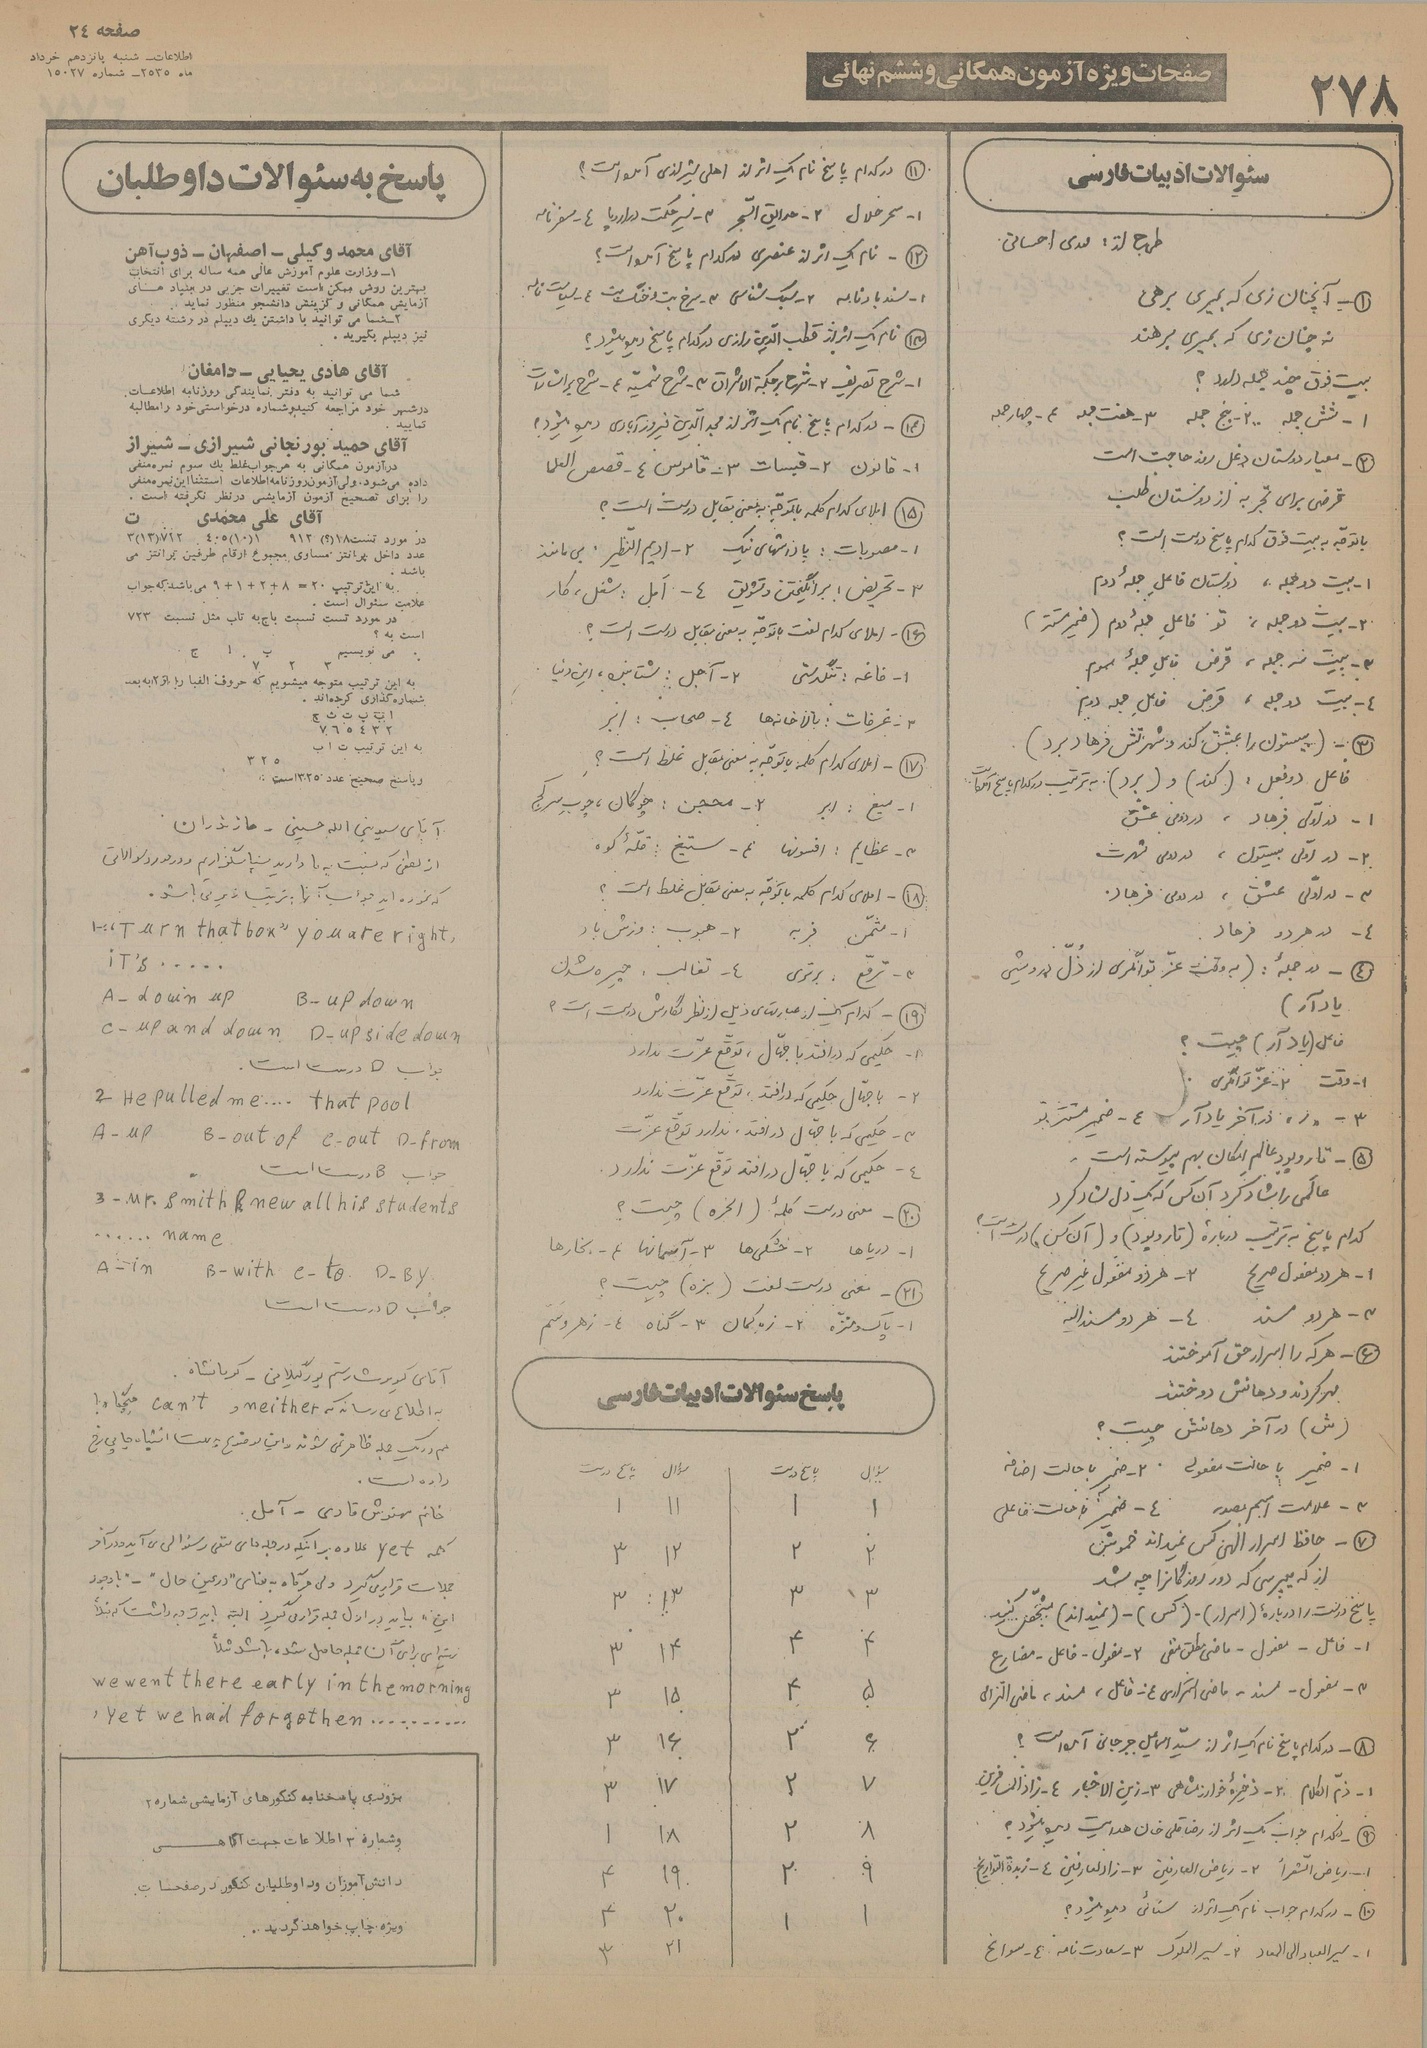 صفحه ۲۴
اطلاعات ـ شنبه پانزدهم خرداد
ماه ۲۵۳۵ ـ شماره ۱۵۰۲۷
صفحات ویژه آزمون همگانی و ششم نهائی
۲۷۸
سئوالات ادبیات فارسی
طرح از : مهدی احسانی
۱ـ آنچنان زی که بمیری برهی
نه چنان زی که بمیری برهند
بیت فوق چند جمله دارد ؟
۱ـ شش جمله ۲ـ پنج جمله ۳ـ هفت جمله ۴ـ چهار جمله
۲ـ معیار دوستان دغل روز حاجت است
قرضی برای تجربه از دوستان طلب
با توجّه به بیت فوق کدام پاسخ درست است ؟
۱ـ بیت دو جمله ، دوستان فاعل جملهٔ دوم
۲ـ بیت دو جمله ، تو فاعل جملهٔ دوم (ضمیر مستتر)
۳ـ بیت سه جمله ، قرض فاعل جملهٔ سوم
٤ـ بیت دو جمله ، قرض فاعل جمله دوم
۳ـ (بیستون را عشق کند و شهرتش فرهاد برد) .
فاعل دو فعل : (کند) و (برد) به ترتیب در کدام پاسخ آمده است
۱ـ در اوّلی فرهاد ، در دومی عشق
۲ـ در اوّلی بیستون ، در دومی شهرت
۳ـ در اوّلی عشق ، در دومی فرهاد
٤ـ در هر دو فرهاد
٤ـ در جملهٔ : (به وقت عزّ توانگری از ذُلّ درویشی
یاد آر)
فاعل (یاد آر) چیست ؟
۱ـ وقت ۲ـ عزّ توانگری
۳ـ «ر» در آخر یاد آر ٤ـ ضمیر مستتر تو
۵ـ تار و پود عالم امکان بهم پیوسته است
عالمی را شاد کرد آن کس که یک دل شاد کرد
کدام پاسخ به ترتیب دربارهٔ (تار و پود) و (آن کس) درست است ؟
۱ـ هر دو مفعول صریح ۲ـ هر دو مفعول غیر صریح
۳ـ هر دو مسند ٤ـ هر دو مسندالیه
۶ـ هر که را اسرار حق آموختند
مهر کردند و دهانش دوختند
(ش) در آخر دهانش چیست ؟
۱ـ ضمیر با حالت مفعولی ۲ـ ضمیر با حالت اضافه
۳ـ علامت اسم مصدر ٤ـ ضمیر با حالت فاعلی
۷ـ حافظ اسرار الهی کس نمیداند خموش
از که میپرسی که دور روزگاران را چه شد
پاسخ درست را دربارهٔ (اسرار) ـ (کس) ـ (نمیداند) مشخّص کنید.
۱ـ فاعل ـ مفعول ـ ماضی مطلق منفی ۲ـ مفعول ـ فاعل ـ مضارع
۳ـ مفعول ـ مسند ـ ماضی استمراری ٤ـ فاعل ، مسند ، ماضی التزامی
۸ـ در کدام پاسخ نام یک اثر از سیّد اسماعیل جرجانی آمده است ؟
۱ـ ذمّ الکلام ۲ـ ذخیرهٔ خوارزمشاهی ۳ـ زین الاخبار ٤ـ زاد المسافرین
۹ـ در کدام جواب یک اثر از رضا قلی خان هدایت دیده میشود ؟
۱ـ ریاض الشعرا ۲ـ ریاض العارفین ۳ـ زاد العارفین ٤ـ زبدة التواریخ
۱۰ـ در کدام جواب نام یک اثر از سنائی دیده میشود ؟
۱ـ سیر العباد الی المعاد ۲ـ سیر الملوک ۳ـ سعادت نامه ٤ـ سوانح
۱۱ـ در کدام پاسخ نام یک اثر از اهلی شیرازی آمده است ؟
۱ـ سحر حلال ۲ـ حدایق السّحر ۳ـ سیر حکمت در اروپا ٤ـ سفرنامه
۱۲ـ نام یک اثر از عنصری در کدام پاسخ آمده است ؟
۱ـ سند باد نامه ۲ـ سبک شناسی ۳ـ سرخ بت و خنگ بت ٤ـ سیاست نامه
۱۳ـ نام یک اثر از قطب الدّین رازی در کدام پاسخ دیده میشود ؟
۱ـ شرح تصریف ۲ـ شرح بر حکمة الاشراق ۳ـ شرح شمسیّه ٤ـ شرح بر اشارات
۱۴ـ در کدام پاسخ نام یک اثر از مجد الدّین فیروز آبادی دیده میشود ؟
۱ـ قانون ۲ـ قبسات ۳ـ قاموس ٤ـ قصص العلما
۱۵ـ املای کدام کلمه با توجّه به معنی مقابل درست است ؟
۱ـ مصوبات : پاداشهای نیک ۲ـ ادیم النّظیر : بی مانند
۳ـ تحریض : برانگیختن و تشویق ٤ـ اَمل : شغل ، کار
۱۶ـ املای کدام لغت با توجّه به معنی مقابل درست است ؟
۱ـ فاغه : تنگدستی ۲ـ آجل : شتابنده ، این دنیا
۳ـ غرفات : بالاخانه‌ها ٤ـ صحاب : ابر
۱۷ـ املای کدام کلمه با توجّه به معنی مقابل غلط است ؟
۱ـ میغ : ابر ۲ـ محجن : چوگان ، چوب سر کج
۳ـ عظایم : افسونها ۴ـ ستیغ : قلّهٔ کوه
۱۸ـ املای کدام کلمه با توجّه به معنی مقابل غلط است ؟
۱ـ مثمّن فربه ۲ـ هبوب : وزش باد
۳ـ ترفّع : برتری ٤ـ تغالب : چیره شدن
۱۹ـ کدام یک از عبارتهای ذیل از نظر نگارش درست است ؟
۱ـ حکیمی که در افتد با جهّال ، توقّع عزّت ندارد
۲ـ با جهّال حکیمی که در افتد ، توقّع عزّت ندارد
۳ـ حکیمی که با جهّال در افتد ، ندارد توقّع عزّت
٤ـ حکیمی که با جهّال در افتد توقّع عزّت ندارد .
۲۰ـ معنی درست کلمهٔ (ابخره) چیست ؟
۱ـ دریاها ۲ـ خشکی‌ها ۳ـ آسمانها ۴ـ بخارها
۲۱ـ معنی درست لغت (بزه) چیست ؟
۱ـ پاک و منزّه ۲ـ زه کمان ۳ـ گناه ٤ـ زهر و سَم
پاسخ سئوالات ادبیات فارسی
سؤال پاسخ درست سؤال پاسخ درست
۱ ۱ ۱۱ ۱
۲ ۲ ۱۲ ۳
۳ ۳ ۱۳ ۳
۴ ۴ ۱۴ ۳
۵ ۴ ۱۵ ۳
۶ ۲ ۱۶ ۳
۷ ۲ ۱۷ ۳
۸ ۲ ۱۸ ۱
۹ ۲ ۱۹ ۴
۱ ۱ ۲۰ ۴
۲۱ ۳
پاسخ به سئوالات داوطلبان
آقای محمد وکیلی ـ اصفهان ـ ذوب آهن
۱ـ وزارت علوم آموزش عالی همه ساله برای انتخاب
بهترین روش ممکن است تغییرات جزیی در بنیاد هـای
آزمایش همگانی و گزینش دانشجو منظور نماید .
۲ـ شما می توانید با داشتن یك دیپلم در رشته دیگری
نیز دیپلم بگیرید .
آقای هادی یحیایی ـ دامغان
شما می توانید به دفتر نمایندگی روزنامه اطلاعـات
درشهر خود مراجعه کنید و شماره درخواستی خود را مطالبه
نمایید .
آقای حمید بورنجانی شیرازی ـ شیراز
در آزمون همگانی به هر جواب غلط یك سوم نمره منفی
داده می‌شود، ولی آزمون روزنامه اطلاعات استثنا این نمره منفی
را برای تصحیح آزمون آزمایشی در نظر نگرفته است .
آقای علی محمدی ت
در مورد تست ۱۸(؟) ۹۱۲ ۱(۱۰)۴۰۵ ۷۲۲(۱۳)۳
عدد داخل پرانتز مساوی مجموع ارقام طرفین پرانتز می
باشد .
به این ترتیب ۲۰ = ۸+۲+۱+۹ می‌باشد که جواب
علامت سئوال است .
در مورد تست نسبت باج به تاب مثل نسبت ۷۲۳
است به ؟
می نویسیم ب ا ج
۳ ۲ ۷
به این ترتیب متوجه میشویم که حروف الفبا را از ۲ به بعد
شماره گذاری کرده‌اند .
ا ب پ ت ث ج
۷ ۶ ۵ ۴ ۳ ۲
به این ترتیب ت ا ب
۳ ۲ ۵
و پاسخ صحیح عدد ۳۲۵ است .
از لطفی که نسبت به ما دارید سپاسگزاریم و در مورد سوالاتی
که نموده اید جواب آنها به ترتیب زیر می باشد .
1- "Turn that box" you are right,
iT's .....
A- down up B- up down
C- up and down D- up side down
جواب D درست است .
2 He pulled me .... that pool
A- up B- out of C- out D- from
جواب B درست است
3- Mr. Smith knew all his students
...... name
A- in B- with C- to D- By
جواب D درست است
به اطلاع می رساند که neither و can't
داده است .
خانم مهنوش قادی ـ آمل .
کلمه yet علاوه بر آنکه در جمله های منفی و سؤالی می آید و در آخر
جملات قرار می گیرد ولی هر گاه به معنای "در عین حال" ـ "با وجود
این" بیاید در اول جمله قرار می گیرد البته باید توجه داشت که
we went there early in the morning
, Yet we had forgothen ..........
بزودی پاسخنامه کنکورهای آزمایشی شماره ۲
و شمارهٔ ۳ اطلاعات جهت آگاهـــی
دانش آموزان و داوطلبان کنکور در صفحـــات
ویژه چاپ خواهد گردید .